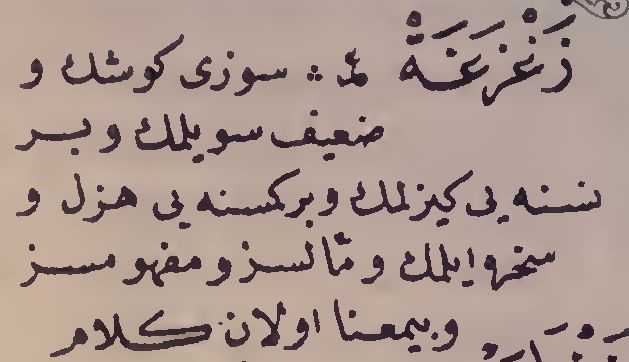 زَغْزَغَةْ ⁂ سوزی کوشك و
ضعیف سویلمك و بر
نسنه یی کیزلمك و برکمسنه یی هزل و
سخره ایلمك و مآلسز و مفهومسز
و بیمعنا اولان کلام